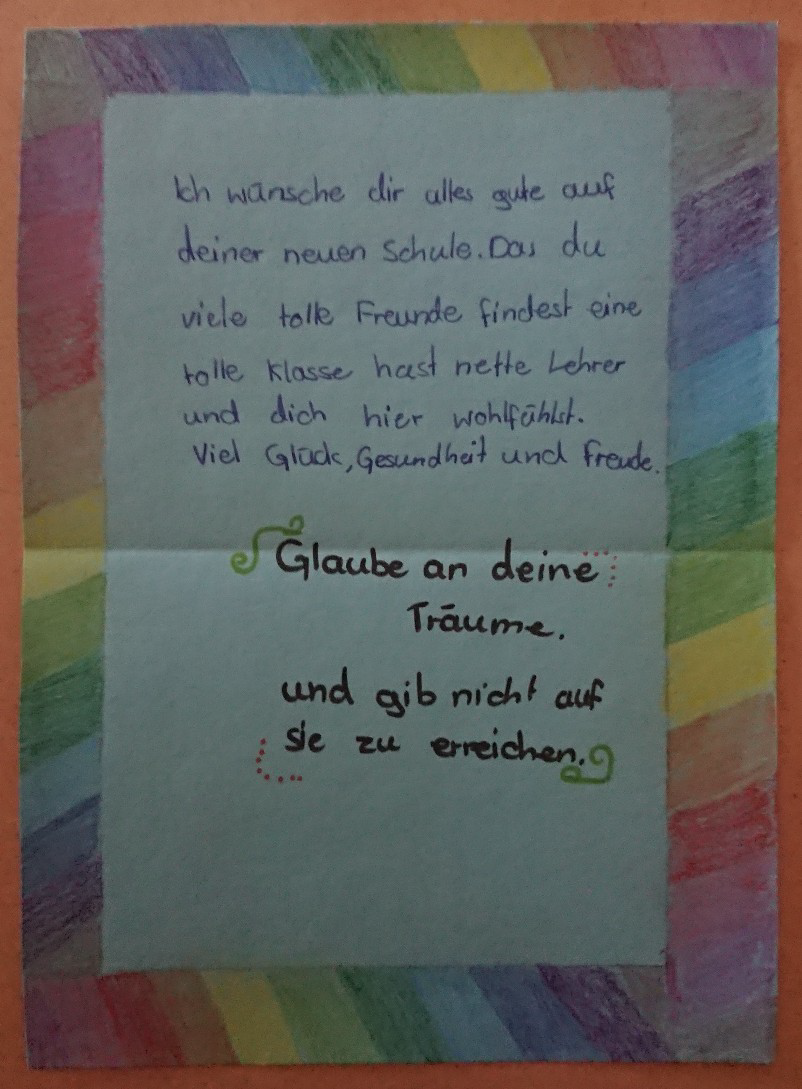 Ich wünsche dir alles gute auf
deiner neuen Schule. Das du
viele tolle Freunde findest eine
tolle Klasse hast nette Lehrer
und dich hier wohlfühlst.
Viel Glück, Gesundheit und Freude.
Glaube an deine
Träume.
und gib nicht auf
sie zu erreichen.